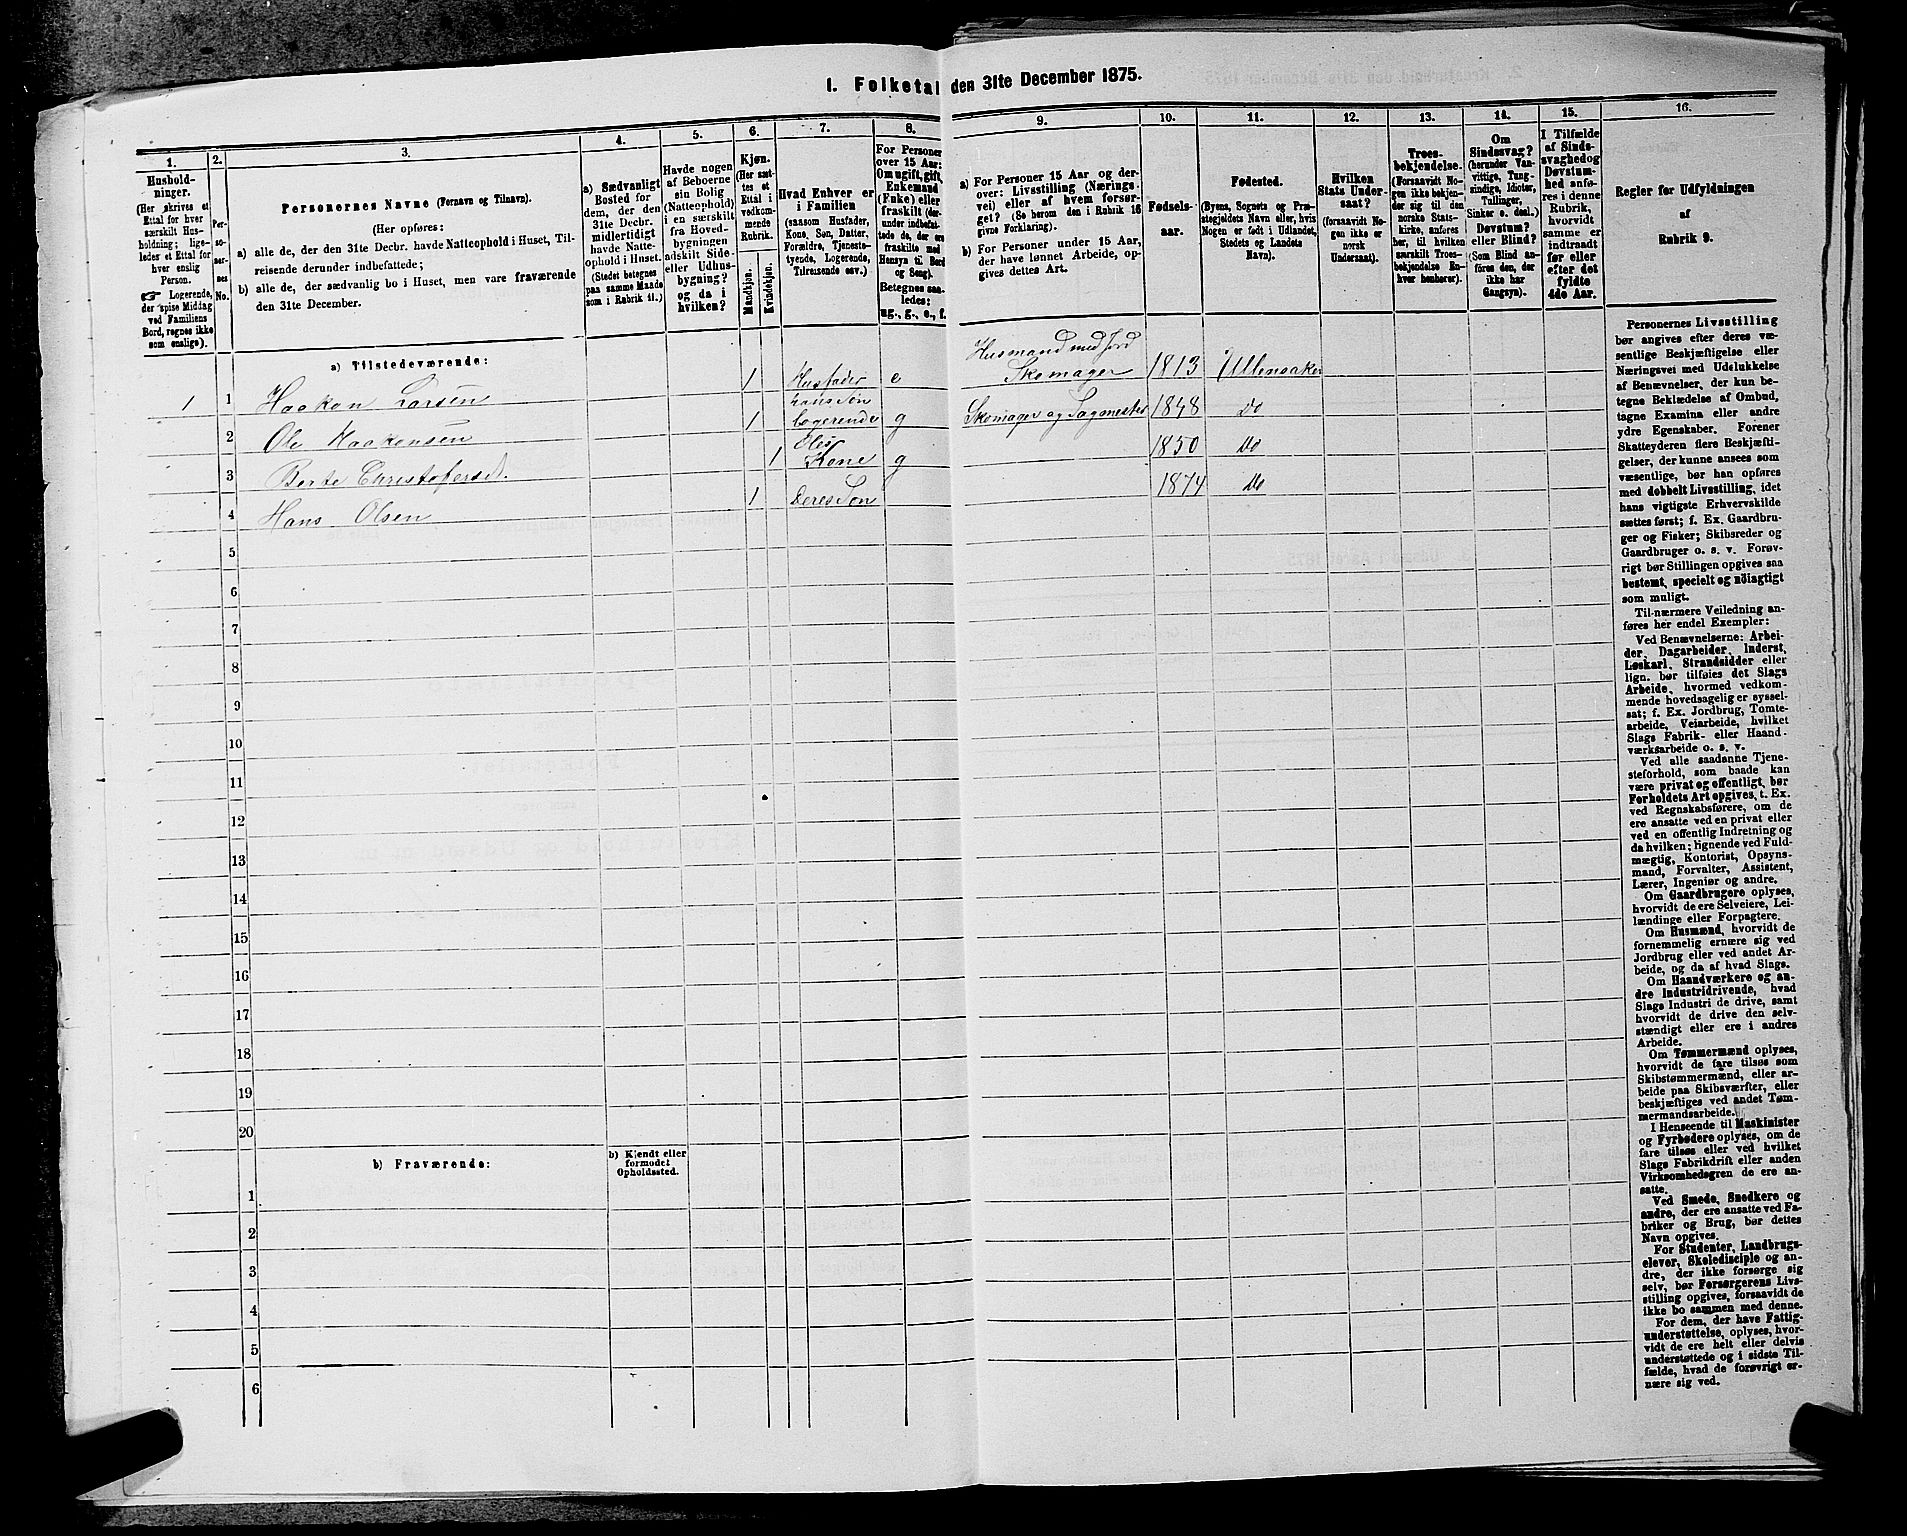 1. Folketal den 31te December 1875.
1.
Hushold-
ninger.
(Her skrives et
Ettal for hver
særskilt Hus-
holdning; lige-
ledes et Ettal for
hver enslig
Person.
☞ Logerende,
der spise Middag
ved Familiens
Bord, regnes ikke
som enslige).
2.
Per-
so-
ner-
nes
No.
3.
Personernes Navne (Fornavn og Tilnavn).
(Her opføres:
a) alle de, der den 31te Decbr. havde Natteophold i Huset, Til-
reisende derunder indbefattede;
b) alle de, der sædvanlig bo i Huset, men vare fraværende
den 31te December.
4.
a) Sædvanligt
Bosted for
dem, der den
31te Decbr.
midlertidigt
havde Natte-
ophold i Huset.
(Stedet betegnes
paa samme Maade
som i Rubrik 11.)
5.
Havde nogen
af Beboerne
sin Bolig
(Natteophold)
i en særskilt
fra Hoved-
bygningen
adskilt Side-
eller Udhus-
bygning?
og da i
hvilken?
6.
Kjøn.
(Her sæt-
tes et
Ettal i
vedkom-
mende
Rubrik.
Mandkjøn.
Kvindekjøn.
7.
Hvad Enhver er
i Familien
(saasom Husfader,
Kone, Søn, Datter,
Forældre, Tjeneste-
tyende, Logerende,
Tilreisende osv.)
8.
For Personer
over 15 Aar:
Om ugift, gift,
Enkemand
(Enke) eller
fraskilt (der-
under indbefat-
tede de, der ere
fraskilte med
Hensyn til Bord
og Seng).
Betegnes saa-
ledes:
ug., g., e., f.
9.
a) For Personer 15 Aar og der-
over: Livsstilling (Nærings-
vei) eller af hvem forsør-
get? (Se herom den i Rubrik 16
givne Forklaring).
b) For Personer under 15 Aar,
der have lønnet Arbeide, op-
gives dettes Art.
10.
Fødsels-
aar.
11.
Fødested.
(Byens, Sognets og Præ-
stegjeldets Navn eller, hvis
Nogen er født i Udlandet,
Stedets og Landets
Navn).
12.
Hvilken
Stats Under-
saat?
(forsaavidt No-
gen ikke er
norsk
Undersaat).
13.
Troes-
bekjendelse.
(Forsaavidt No-
gen ikke bekjen-
der sig til den
norske Stats-
kirke, anføres
her, til hvilken
særskilt Troes-
bekjendelse En-
hver henhører).
14.
Om
Sindssvag?
(herunder Van-
vittige, Tung-
sindige, Idioter,
Tullinger,
Sinker o. desl.)
Døvstum?
eller Blind?
(Som Blind an-
føres den, der
ikke har
Gangsyn).
15.
I Tilfælde
af Sinds-
svaghed og
Døvstum-
hed anfø-
res i denne
Rubrik,
hvorvidt
samme er
indtraadt
før eller
efter det
fyldte
4de Aar.
16.
Regler for Udfyldningen
af
Rubrik 9.
a) Tilstedeværende:
1 1 Haakon Larsen 1 Husfader e Husmand med Jord
Skomager 1813 Ullensaker
2 Ole Haakensen 1 hans Søn
logerende g Skomager og 1848 Do
3 Berte Christofersd. 1 Oles
Kone g 1850 Do
4 Hans Olsen 1 Deres Søn 1874 Do
5
6
7
8
9
10
11
12
13
14
15
16
17
18
19
20
b) Fraværende:
b) Kjendt eller
formodet
Opholdssted.
1
2
3
4
5
6
Personernes Livsstilling
bør angives efter deres væ-
sentlige Beskjæftigelse eller
Næringsvei med Udelukkelse
af Benævnelser, der kun be-
tegne Beklædelse af Ombud,
tagne Examina eller andre
ydre Egenskaber. Forener
Skatteyderen flere Beskjæfti-
gelser, der kunne ansees som
væsentlige, bør han opføres
med dobbelt Livsstilling, idet
hans vigtigste Erhvervskilde
sættes først; f. Ex. Gaardbru-
ger og Fisker; Skibsreder og
Gaardbruger o. s. v. Forøv-
rigt bør Stillingen opgives saa
bestemt, specielt og nöiagtigt
som muligt.
Til nærmere Veiledning an-
føres her endel Exempler:
Ved Benævnelserne: Arbei-
der, Dagarbeider, Inderst,
Løskarl, Strandsidder eller
lign. bør tilføies det Slags
Arbeide, hvormed vedkom-
mende hovedsagelig er syssel-
sat; f. Ex. Jordbrug, Tomte-
arbeide, Veiarbeide, hvilket
Slags Fabrik- eller Haand-
værksarbeide o. s. v.
Ved alle saadanne Tjene-
steforhold, som baade kan
være privat og offentligt, bør
Forholdets Art opgives, t. Ex.
ved Regnskabsførere, om de
ere ansatte ved en privat eller
ved en offentlig Indretning og
da hvilken; lignende ved Fuld-
mægtig, Kontorist, Opsyns-
mand, Forvalter, Assistent,
Lærer, Ingeniør og andre.
Om Gaardbrugere oplyses,
hvorvidt de ere Selveiere, Lei-
lændinge eller Forpagtere.
Om Husmænd, hvorvidt de
fornemmelig ernære sig ved
Jordbrug eller ved andet Ar-
beide, og da af hvad Slags.
Om Haandværkere og an-
dre Industridrivende, hvad
Slags Industri de drive, samt
hvorvidt de drive den selv-
stændigt eller ere i andres
Arbeide.
Om Tømmermænd oplyses,
hvorvidt de fare tilsøs som
Skibstømmermænd, eller ar-
beide paa Skibsværfter, eller
beskjæftiges ved andet Tøm-
mermandsarbeide.
I Henseende til Maskinister
og Fyrbødere oplyses, om de
fare tilsøs eller ved hvilket
Slags Fabrikdrift eller anden
Virksomhedsgren de ere an-
satte.
Ved Smede, Snedkere og
andre, der ere ansatte ved Fa-
briker og Brug, bør dettes
Navn opgives.
For Studenter, Landbrugs-
elever, Skoledisciple og an-
dre, der ikke forsørge sig
selv, bør Forsørgerens Livs-
stilling opgives, forsaavidt de
ikke bo sammen med denne.
For dem, der have Fattig-
understøttelse, oplyses, hvor-
vidt de ere helt eller delvis
understøttede og i sidste Til-
fælde, hvad de forøvrigt er-
nære sig ved.